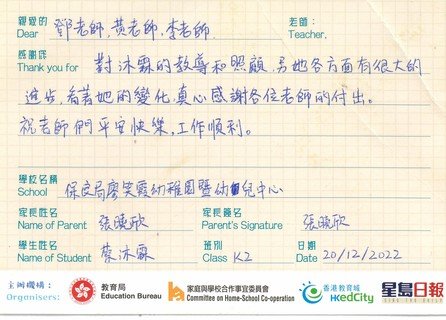 親愛的 鄧老師,黃老師,李老師 老師:
Dear Teacher,
感謝您
Thank you for 對沐霖的教導和照顧,另她各方面有很大的
進步,看著她的變化,真心感謝各位老師的付出。
祝老師們平安快樂,工作順利。
學校名稱
School 保良局廖笑霞幼稚園暨幼兒中心
家長姓名 家長簽名
Name of Parent 張曉欣 Parent's Signature 張曉欣
學生姓名 班別 日期
Name of Student 蔡沐霖 Class K2 Date 20/12/2022
主辦機構: 教育局 家庭與學校合作事宜委員會 香港教育城 星島日報
Organisers: Education Bureau Committee on Home-School Co-operation HKedCity